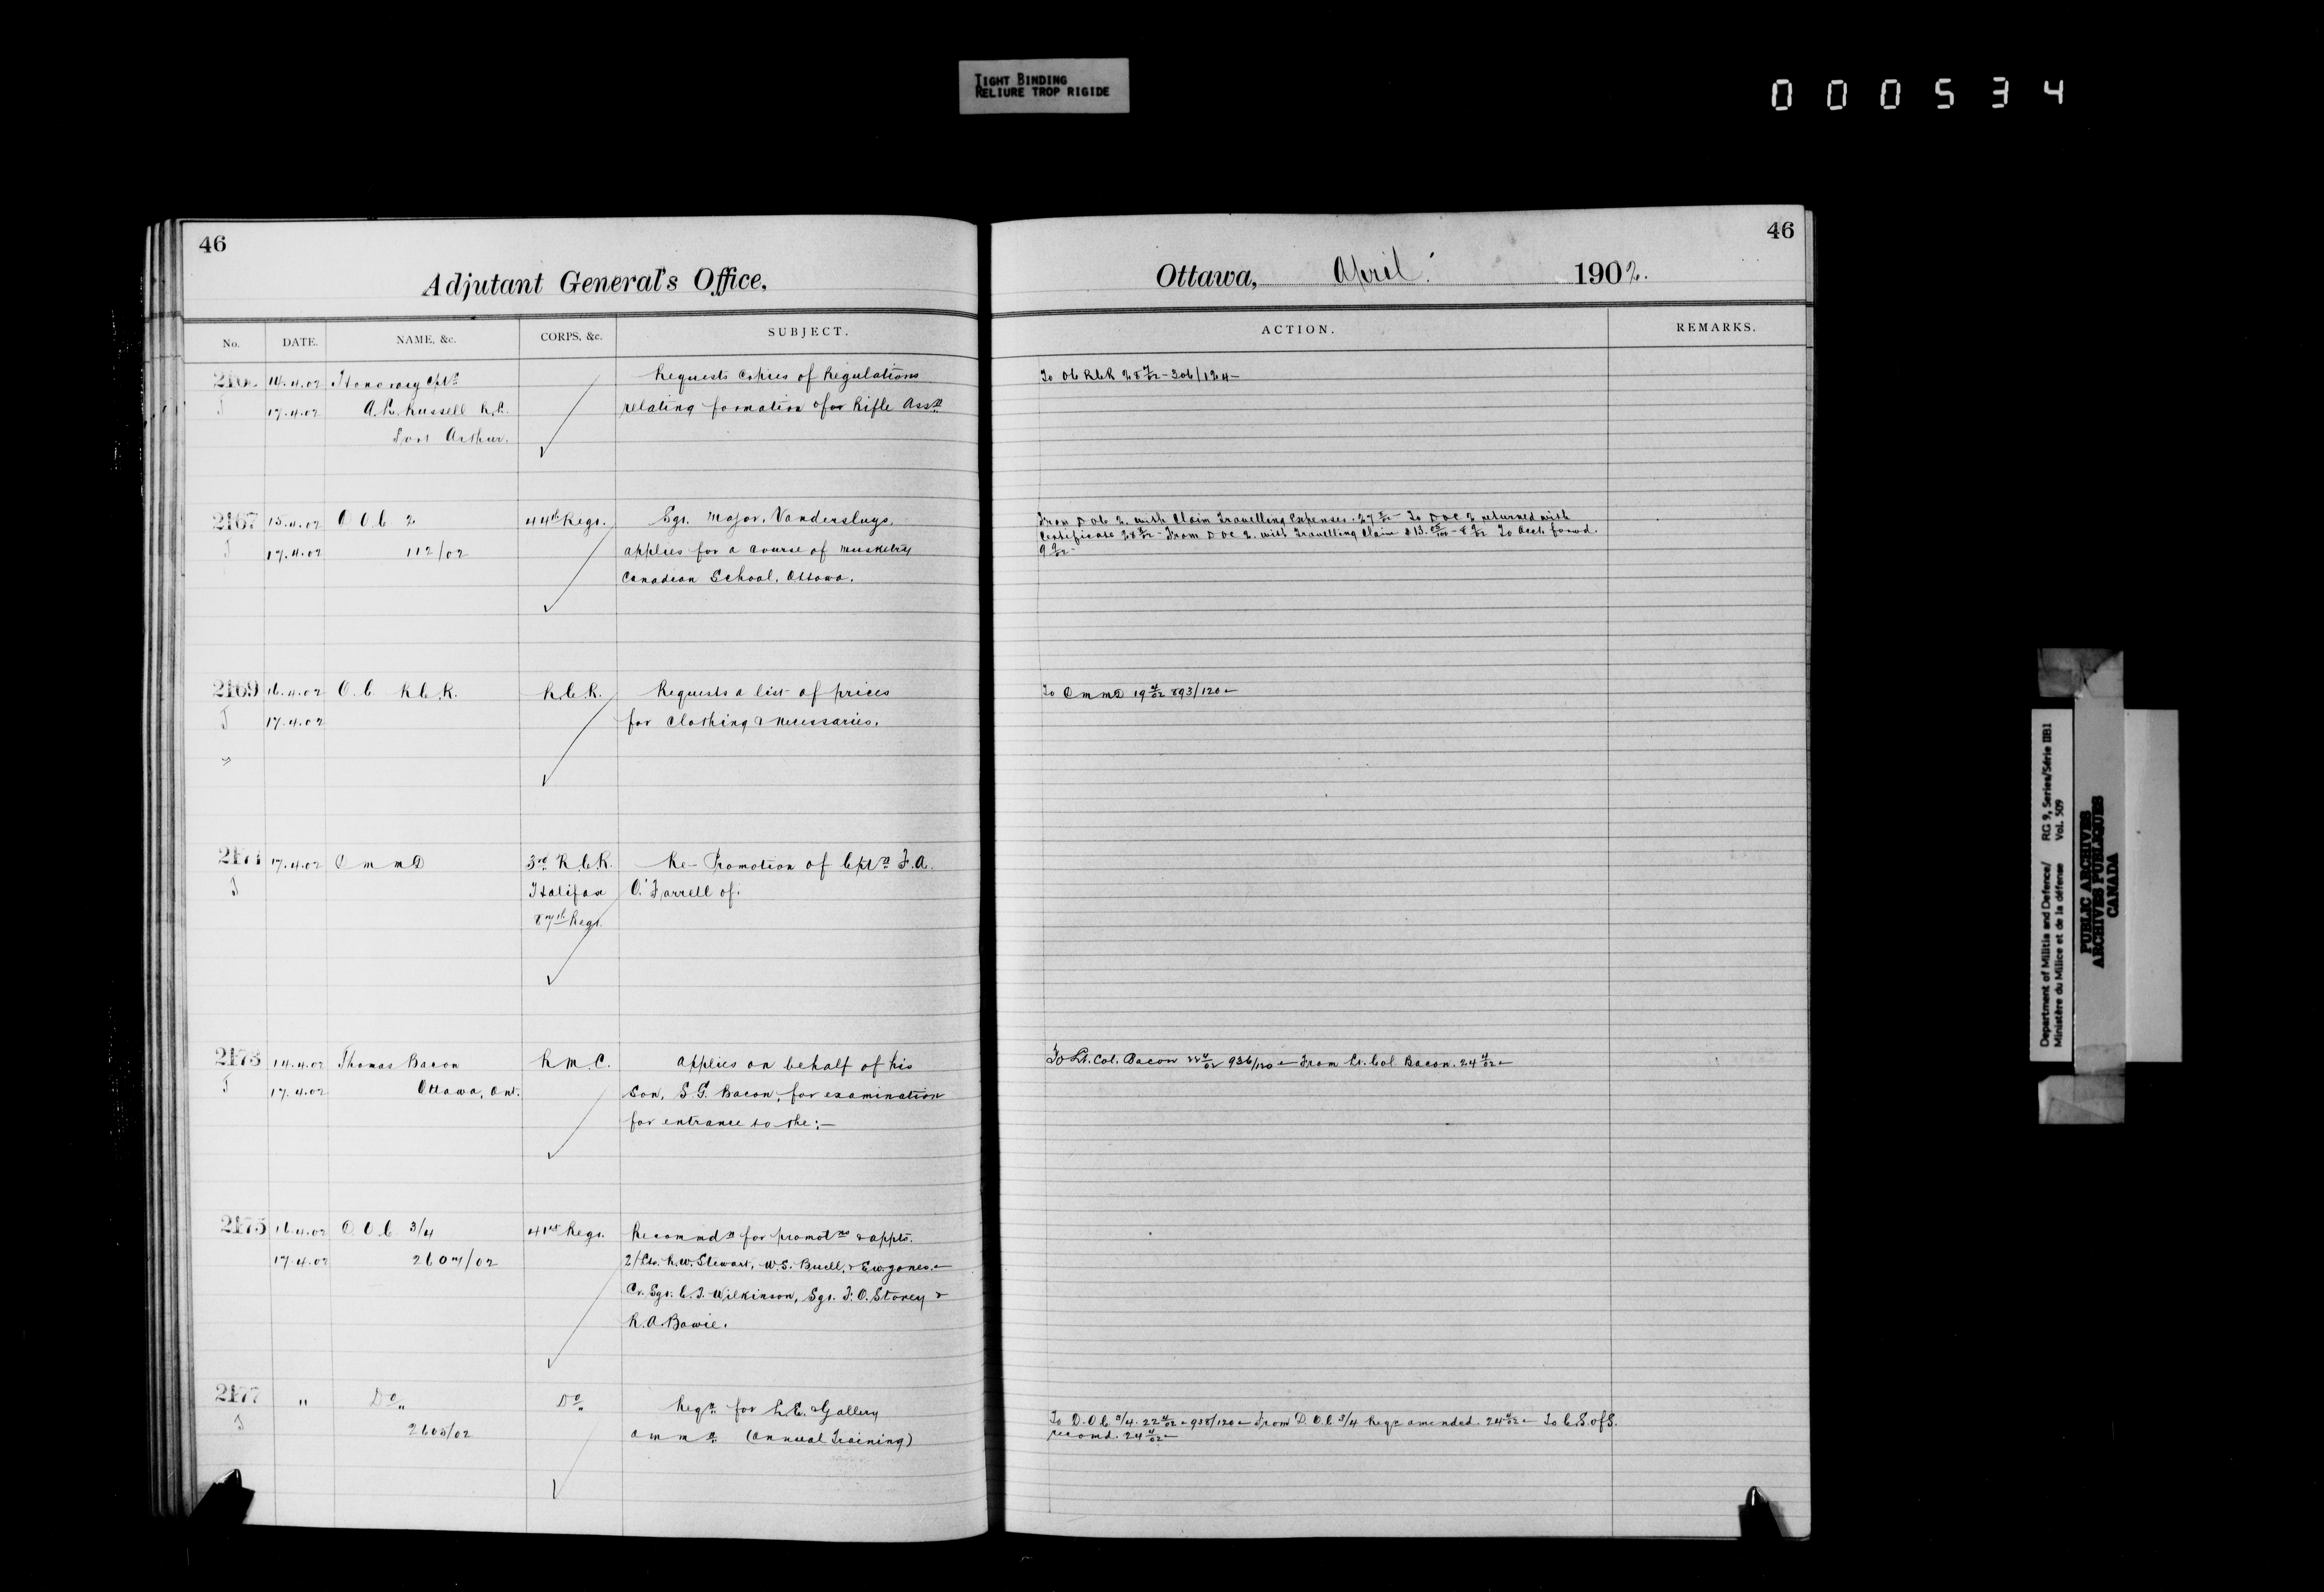 TIGHT BINDING
RELIURE TROP RIGIDE
000534
46
Adjutant General's Office,
No. DATE. NAME, &c. CORPS, &c. SUBJECT.
14.4.02 Honorary Cptn Requests Copies of Regulations
17.4.02 A. L. Russell R.L. relating formation of Rifle Assn
Port Arthur.
2167 15.4.02 D O C 2 44th Regt. Sgt. Major. Vandersluys.
17.4.02 112/02 applies for a course of musketry
Canadian School. Ottawa.
2169 16.4.02 O.C. R.C.R. R.C.R. Requests a list of prices
17.4.02 for Clothing & necessaries.
2171 17.4.02 C m m D 3rd R.C.R. Re- Promotion of Cptn F.A.
Halifax O'Farrell of:
87th Regt.
2173 14.4.02 Thomas Bacon R M C. Applies on behalf of his
17.4.02 Ottawa, Ont. Son, S G. Bacon, for examination
for entrance to the:—
2175 16.4.02 D.O.C. 3/4 41st Regt. Recommdn for promotns & appts.
17.4.02 2607/02 2/Lts. R.W. Stewart, W.S. Buell, & E.W. Jones.—
Cr. Sgt. C.T. Wilkinson, Sgt. F.O. Storey &
R.A. Bowie.
2177 " Do " Do Reqn for L.E. & Gallery
2605/02 ammn (Annual Training)
46
Ottawa, April 1902.
ACTION. REMARKS.
To OC RCR 28 4/02 - 306/124 -
From D OC 2. with Claim Travelling Expenses. 27 - To D OC 2 returned with
Certificate 28 - From D OC 2. with Travelling Claim $13. To Acct. forwd.
To C m m D 19 4/02 893/120 -
To Lt. Col. Bacon 22 4/02 936/120 - From Lt. Col Bacon. 24 4/02 -
To D.O.C. 3/4. 22 4/02 - 938/120 - From D.O.C. 3/4 Reqn amended. 24 4/02 - To C.S. of S.
recomd. 24 4/02 -
Department of Militia and Defence/ RG 9, Series/Série IIB1
Ministère du Milice et de la défense Vol. 509
PUBLIC ARCHIVES
ARCHIVES PUBLIQUES
CANADA